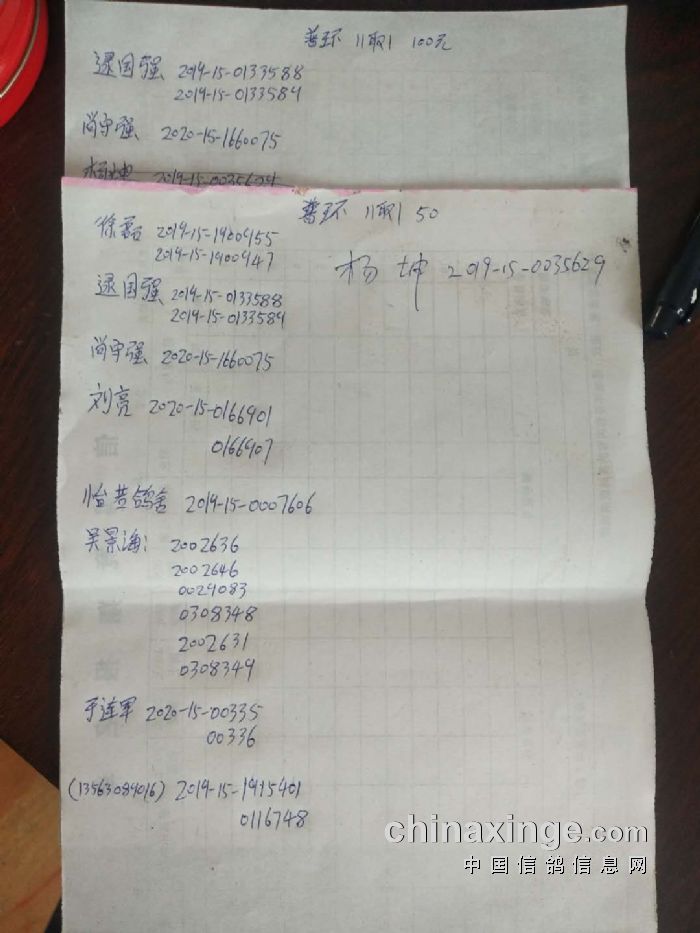 普环 11取1 100元
逯国强 2019-15-0133588
2019-15-0133589
尚守强 2020-15-1660075
杨坤 2019-15-0035629
普环 11取1 50
徐磊 2019-15-1900955
2019-15-1900947
杨 坤 2019-15-0035629
逯国强 2019-15-0133588
2019-15-0133589
尚守强 2020-15-1660075
刘亮 2020-15-0166901
0166907
怡昔鸽舍 2019-15-0007606
吴景海: 2002636
2002646
0029083
0308348
2002631
0308349
于连军 2020-15-00335
00336
(13563089016) 2019-15-1915401
0116748
chinaxinge.com
中国信鸽信息网